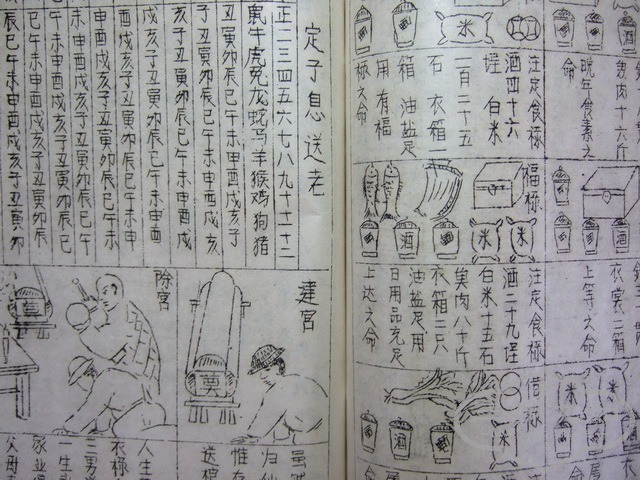 晚年食素之
命
注定食禄
酒四十六
埕 白米
一百二十五
石 衣箱一
箱 油盐足
用 有福
极之命
米
衣裳二箱
上等之命
福禄
酒
米
米
注定食禄
酒二十九埕
白米十五石
肉八十斤
衣箱二只
油盐足用
日用品充足
上达之命
米
米
借禄
酒
米
定子息送老
正二三四五六七八九十十一十二
鼠牛虎兔龙蛇马羊猴鸡狗猪
丑寅卯辰巳午未申酉戌亥子
子丑寅卯辰巳午未申酉戌亥
亥子丑寅卯辰巳午未申酉戌
戌亥子丑寅卯辰巳午未申酉
酉戌亥子丑寅卯辰巳午未申
申酉戌亥子丑寅卯辰巳午未
未申酉戌亥子丑寅卯辰巳午
午未申酉戌亥子丑寅卯辰巳
巳午未申酉戌亥子丑寅卯辰
辰巳午未申酉戌亥子丑寅卯
達宫
归仙
惟存
送
除宫
人生
衣禄
三男
一生
家业
父母